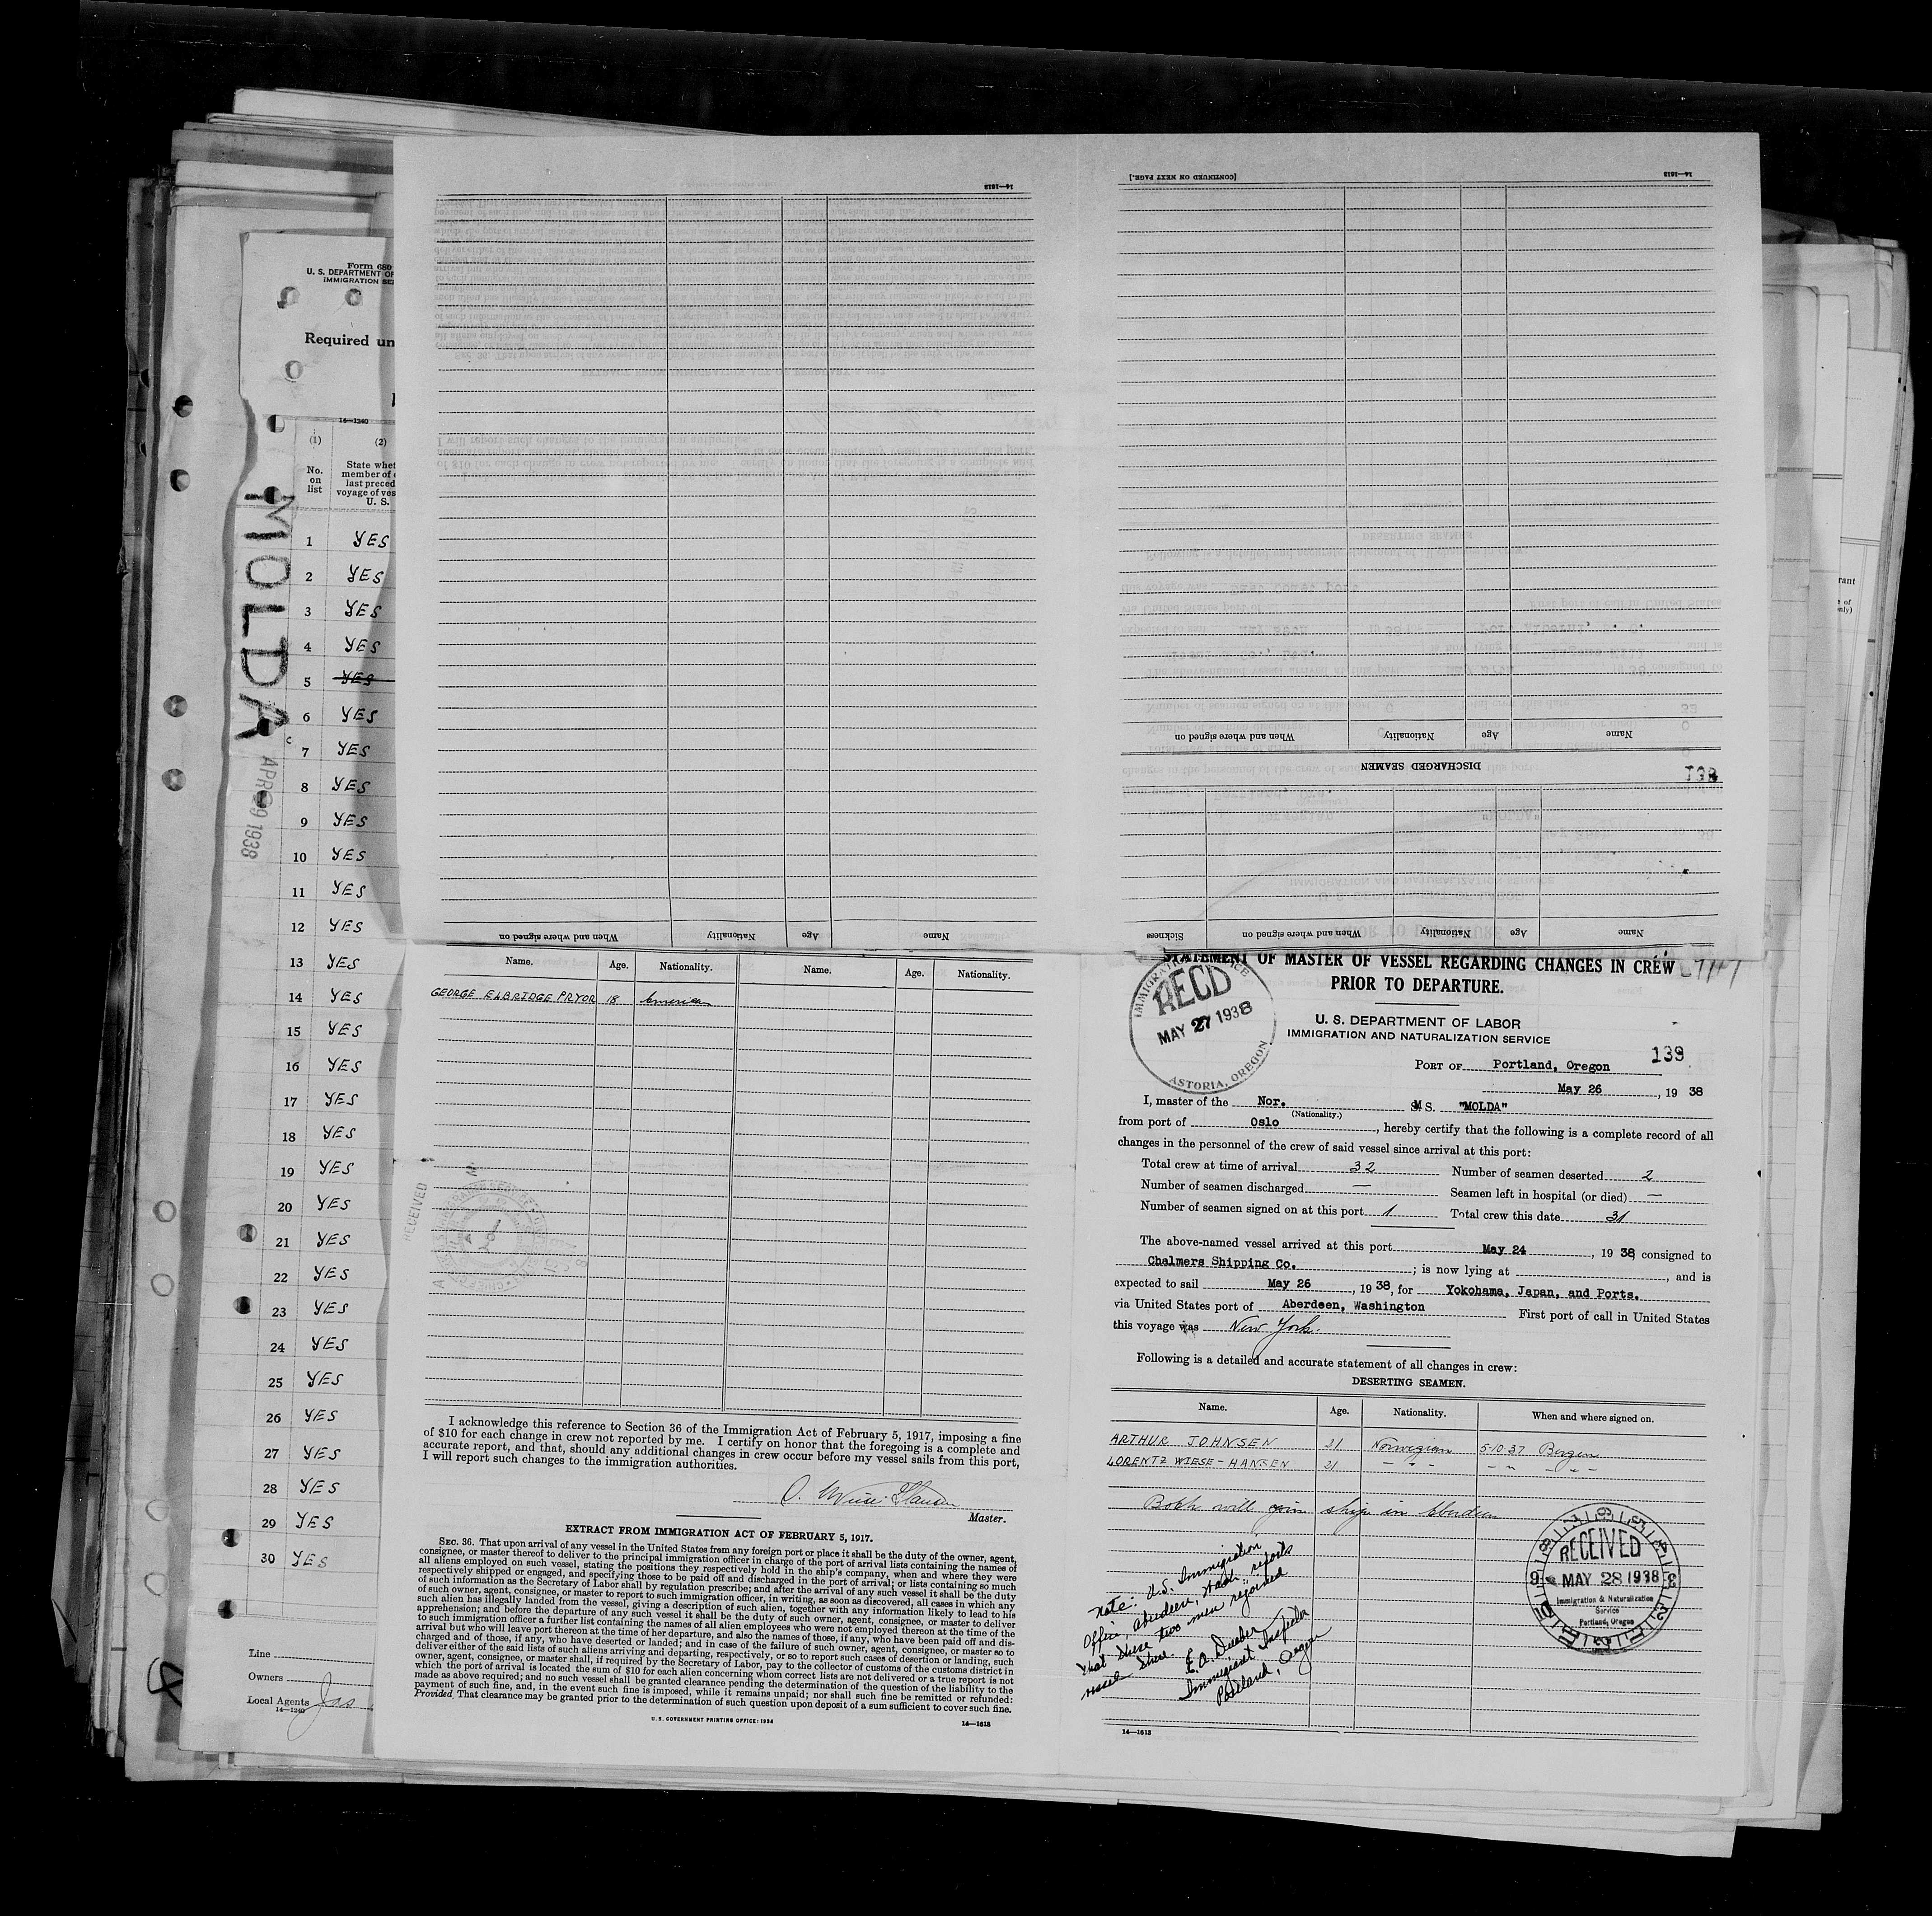 Form 680
U. S. DEPARTMENT OF
IMMIGRATION SE
Required un
14—1240
(1)
(2)
No. on list
State whet
member of
last preced
voyage of ves
U. S.
1 YES
2 YES
3 YES
4 YES
5 YES
6 YES
7 YES
8 YES
9 YES
10 YES
11 YES
12 YES
13 YES
14 YES
15 YES
16 YES
17 YES
18 YES
19 YES
20 YES
21 YES
22 YES
23 YES
24 YES
25 YES
26 YES
27 YES
28 YES
29 YES
30 YES
Line
Owners
Local Agents Jas
14—1240
MOLDA
APR 29 1938
14—1613
When and where signed on Nationality Age Name
[CONTINUED ON NEXT PAGE.]
14—1613
When and where signed on Nationality Age Name
DISCHARGED SEAMEN
139
Sickness When and where signed on Nationality Age Name
Name. Age. Nationality. Name. Age. Nationality.
GEORGE ELBRIDGE PRYOR 18 American
RECEIVED
I acknowledge this reference to Section 36 of the Immigration Act of February 5, 1917, imposing a fine
of $10 for each change in crew not reported by me. I certify on honor that the foregoing is a complete and
accurate report, and that, should any additional changes in crew occur before my vessel sails from this port,
I will report such changes to the immigration authorities.
O. Wiese-Hansen
Master.
EXTRACT FROM IMMIGRATION ACT OF FEBRUARY 5, 1917.
SEC. 36. That upon arrival of any vessel in the United States from any foreign port or place it shall be the duty of the owner, agent,
consignee, or master thereof to deliver to the principal immigration officer in charge of the port of arrival lists containing the names of
all aliens employed on such vessel, stating the positions they respectively hold in the ship's company, when and where they were
respectively shipped or engaged, and specifying those to be paid off and discharged in the port of arrival; or lists containing so much
of such information as the Secretary of Labor shall by regulation prescribe; and after the arrival of any such vessel it shall be the duty
of such owner, agent, consignee, or master to report to such immigration officer, in writing, as soon as discovered, all cases in which any
such alien has illegally landed from the vessel, giving a description of such alien, together with any information likely to lead to his
apprehension; and before the departure of any such vessel it shall be the duty of such owner, agent, consignee, or master to deliver
to such immigration officer a further list containing the names of all alien employees who were not employed thereon at the time of the
arrival but who will leave port thereon at the time of her departure, and also the names of those, if any, who have been paid off and dis-
charged and of those, if any, who have deserted or landed; and in case of the failure of such owner, agent, consignee, or master so to
deliver either of the said lists of such aliens arriving and departing, respectively, or so to report such cases of desertion or landing, such
owner, agent, consignee, or master, shall, if required by the Secretary of Labor, pay to the collector of customs of the customs district in
which the port of arrival is located the sum of $10 for each alien concerning whom correct lists are not delivered or a true report is not
made as above required; and no such vessel shall be granted clearance pending the determination of the question of the liability to the
payment of such fine, and, in the event such fine is imposed, while it remains unpaid; nor shall such fine be remitted or refunded:
Provided, That clearance may be granted prior to the determination of such question upon deposit of a sum sufficient to cover such fine.
U. S. GOVERNMENT PRINTING OFFICE: 1934
14—1613
STATEMENT OF MASTER OF VESSEL REGARDING CHANGES IN CREW
PRIOR TO DEPARTURE.
RECD
MAY 27 1938
ASTORIA, OREGON
U. S. DEPARTMENT OF LABOR
IMMIGRATION AND NATURALIZATION SERVICE
139
PORT OF Portland, Oregon
May 26, 1938
I, master of the Nor. M S. "MOLDA"
(Nationality.)
from port of Oslo, hereby certify that the following is a complete record of all
changes in the personnel of the crew of said vessel since arrival at this port:
Total crew at time of arrival 32 Number of seamen deserted 2
Number of seamen discharged — Seamen left in hospital (or died) —
Number of seamen signed on at this port 1 Total crew this date 31
The above-named vessel arrived at this port May 24, 1938, consigned to
Chalmers Shipping Co.; is now lying at , and is
expected to sail May 26, 1938, for Yokohama, Japan, and Ports.
via United States port of Aberdeen, Washington First port of call in United States
this voyage was New York.
Following is a detailed and accurate statement of all changes in crew:
DESERTING SEAMEN.
Name. Age. Nationality. When and where signed on.
ARTHUR JOHNSEN 21 Norwegian 5-10-37 Bergen
LORENTZ WIESE-HANSEN 21 - " - - " - " -
Both will join ship in Aberdeen
Note: U.S. Immigration
Office, Aberdeen, Wash. reports
that these two men rejoined
vessel there.
Immigrant Inspector
Portland, Oregon
RECEIVED
MAY 28 1938
Immigration & Naturalization
Service
Portland, Oregon
14—1613